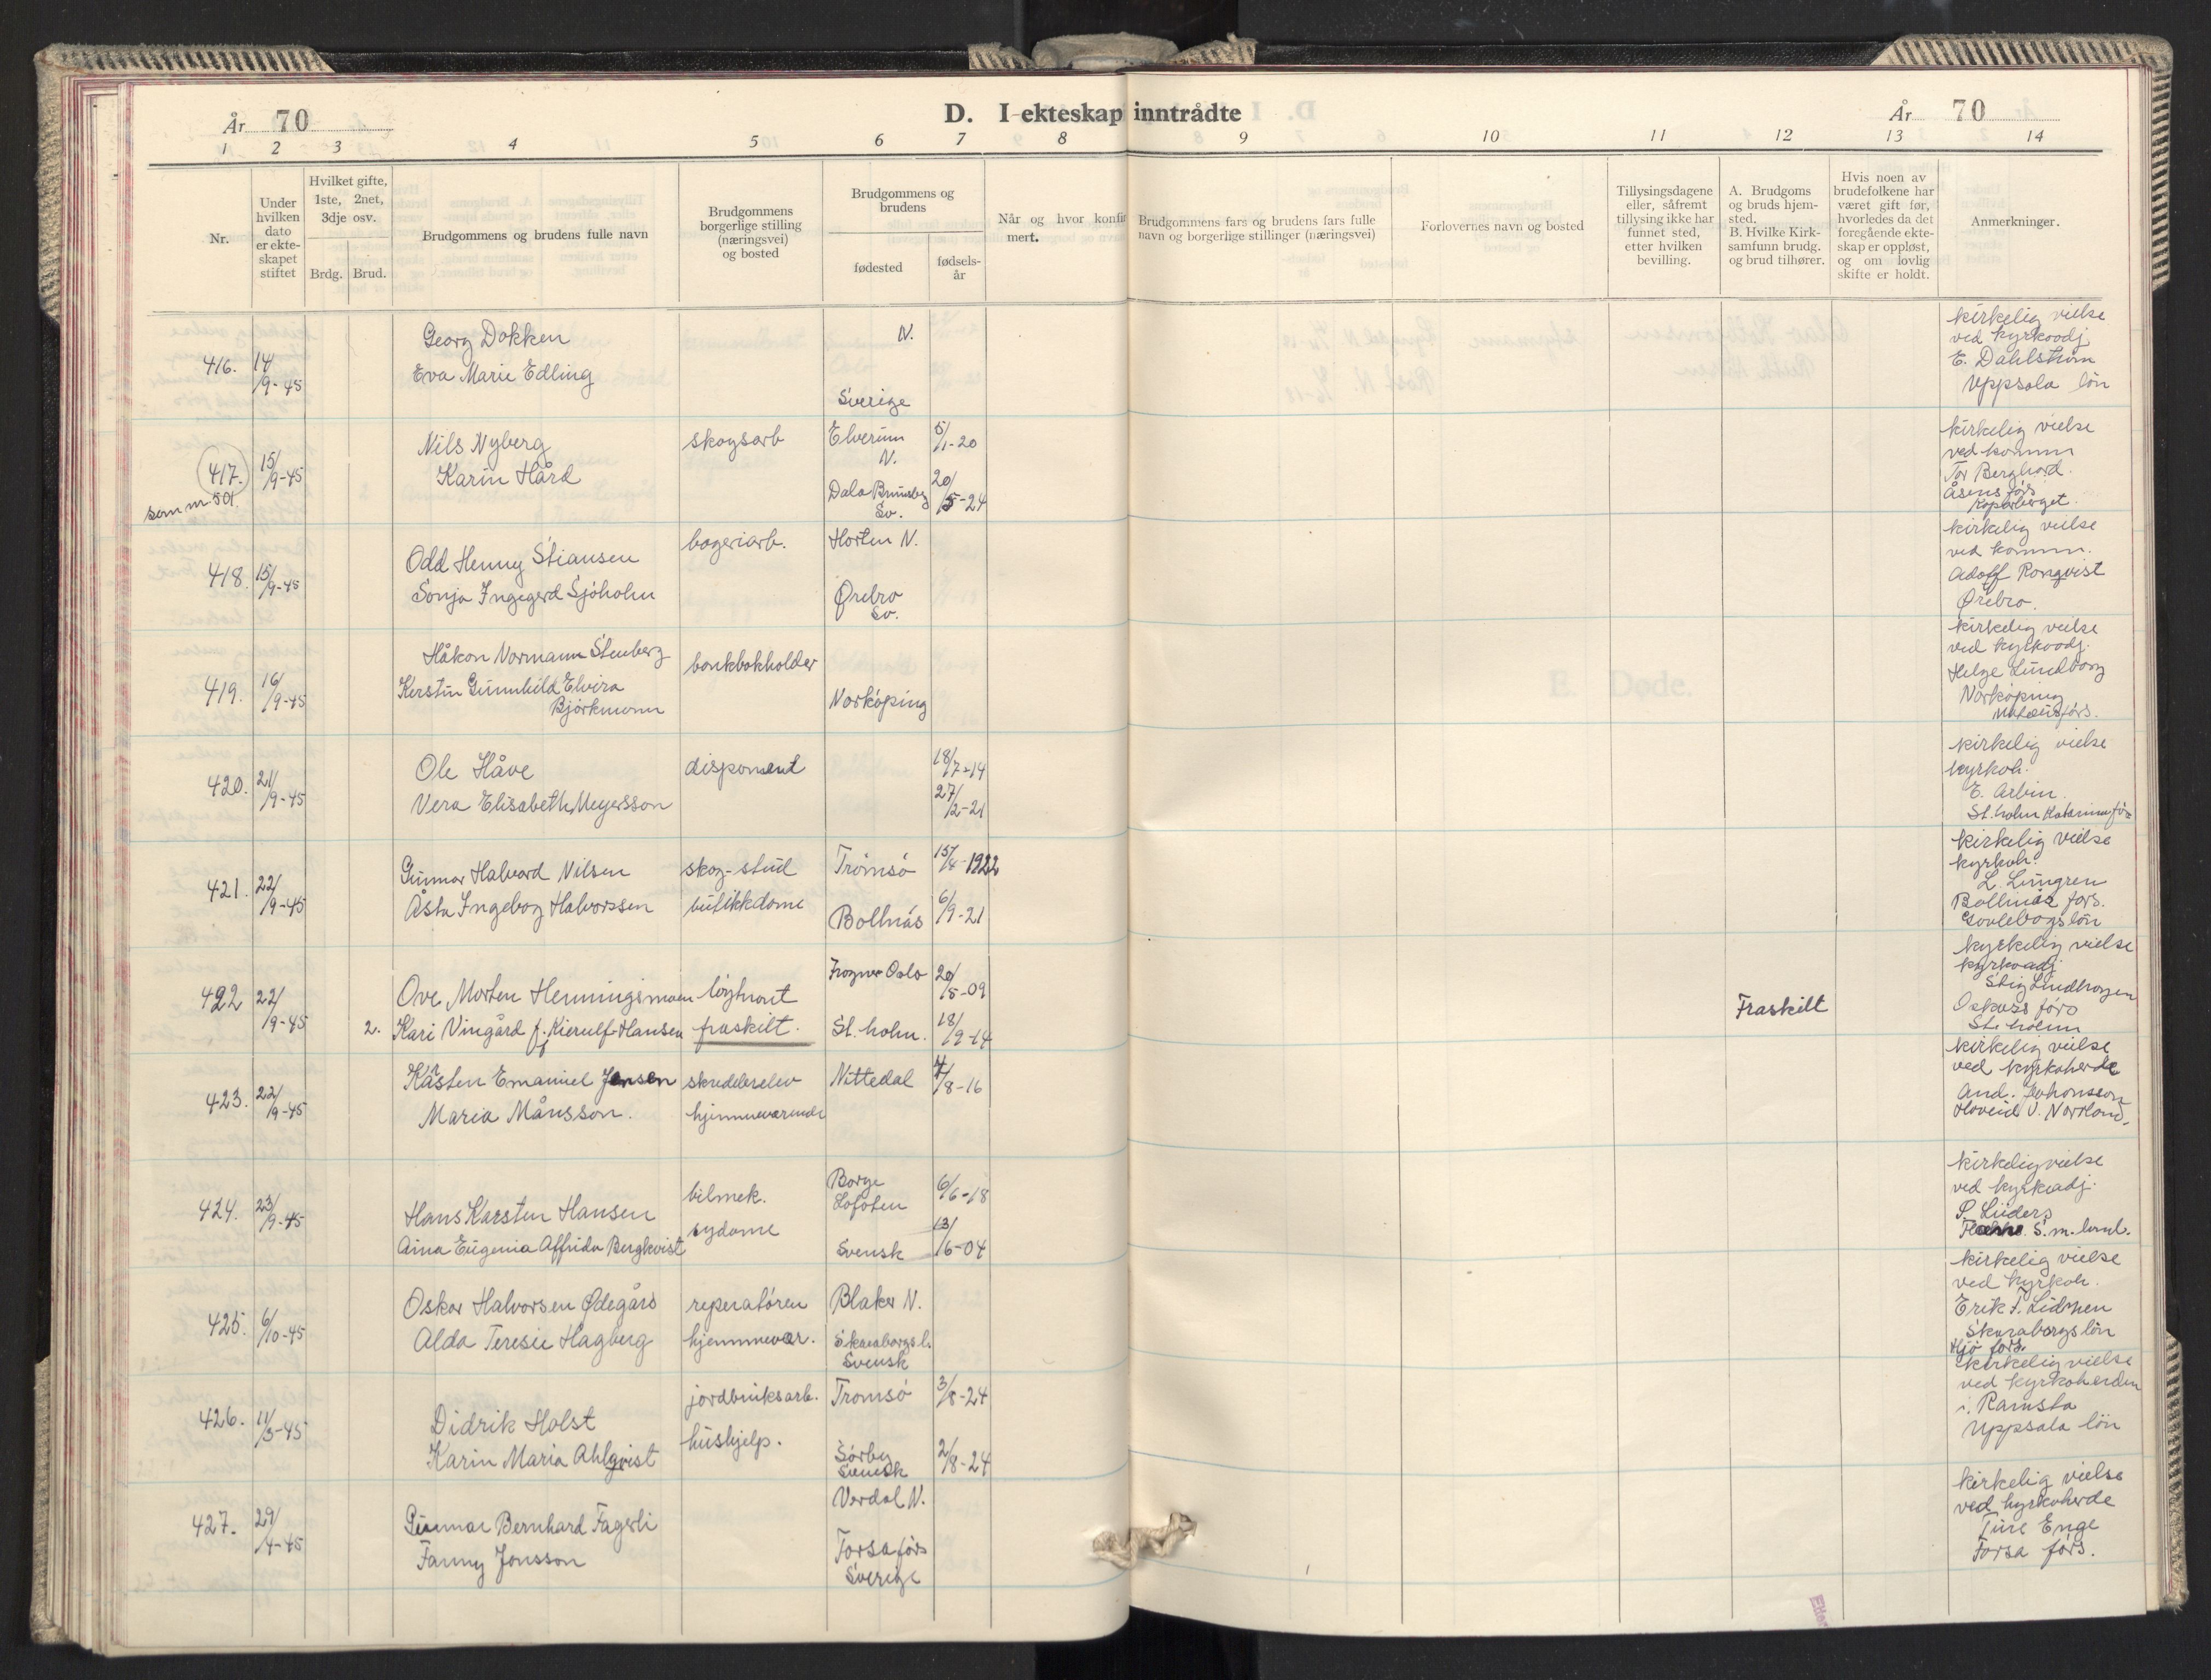 År 70
D. I ekteskap inntrådte
År 70
1 2 3 4 5 6 7 8 9 10 11 12 13 14
Nr.
Under hvilken dato er ekte-skapet stiftet
Hvilket gifte, 1ste, 2net, 3dje osv.
Brdg. Brud.
Brudgommens og brudens fulle navn
Brudgommens borgerlige stilling (næringsvei) og bosted
Brudgommens og brudens
fødested
fødsels-år
Når og hvor konfir
mert.
Brudgommens fars og brudens fars fulle
navn og borgerlige stillinger (næringsvei)
Forlovernes navn og bosted
Tillysingsdagene
eller, såfremt
tillysing ikke har
funnet sted,
etter hvilken
bevilling.
A. Brudgoms
og bruds hjem-
sted.
B. Hvilke Kirk-
samfunn brudg.
og brud tilhører.
Hvis noen av
brudefolkene har
været gift før,
hvorledes da det
foregående ekte-
skap er oppløst,
og om lovlig
skifte er holdt.
Anmerkninger.
416. 14/9-45
Georg Dokken N.
Eva Marie Edling Sverige
kirkelig vielse
ved kyrkoadj.
E. Dahlström
Uppsala län
417. 15/9-45
som nr 501.
Nils Nyberg skogsarb Elverum N. 5/1-20
Karin Hård Dala Sv. 20/5-24
kirkelig vielse
ved komm
Tor Berghard.
Åsens förs
Kopparberget.
418. 15/9-45
Odd Henny Stiansen bageriarb. Horten N.
Sonja Ingegerd Sjöholm Ørebro Sv.
kirkelig vielse
ved komm.
Adolf Ronqvist
Ørebro.
419. 16/9-45
Håkon Normann Stenberg bankbokholder
Kerstin Gunnhild Elvira
Björkmann Norköping
kirkelig vielse
ved kyrkoadj.
Helge Lundborg
Norköping
420. 21/9-45
Ole Håve disponent 18/7-14
Vera Elisabeth Meyersson 27/2-21
kirkelig vielse
kyrkoh.
E. Arbin.
St. holm Katarina förs
421. 22/9-45
Gunnar Halvard Nilsen skog-stud Tromsö 15/4-1922
Åsta Ingeborg Halvorssen butikkdame Bollnäs 6/9-21
kirkelig vielse
kyrkoh.
L. Lungren
Bollnäs förs.
Gävleborgs län
422 22/9-45
Ove Morten Henningsmoen löytnant Frogner Oslo 20/5-09
2. Kari Vingård f. Kierulf-Hansen fraskilt. St. holm. 18/9-14
Fraskilt
kyrkelig vielse
kyrkoadj
Stig Lindhagen
Oskars förs
St. holm
423. 22/9-45
Karsten Emanuel Jensen skredderelev Nittedal 4/8-16
Maria Månsson. hjemmeværende
kirkelig vielse
ved kyrkoherde
And. Johansson
424. 23/9-45
Hans Karsten Hansen bilmek. Borge Lofoten 6/6-18
Aina Eugenia Affrida Bergkvist sydame Svensk 13/6-04
kirkelig vielse
ved kyrkoadj.
P. Lüders
425. 6/10-45
Oskar Halvorsen Ødegårs reperatören Blaker N.
Alda Teresie Hagberg hjemmevær. Skaraborgs l. Svensk
kirkelig vielse
ved kyrkoh.
Erik T. Lidmen
Skaraborgs län
Hjo förs.
426. 11/3-45
Didrik Holst jordbruksarb. Tromsö 3/8-24
Karin Maria Ahlqvist hushjelp. Sörby Svensk 2/8-24
kirkelig vielse
ved kyrkoherden
i Ramsta
Uppsala län
427. 29/4-45
Gunnar Bernhard Fagerli Verdal N.
Fanny Jonsson Forsa förs Sverige
kirkelig vielse
ved kyrkoherde
Ture Enge
Forsa förs.